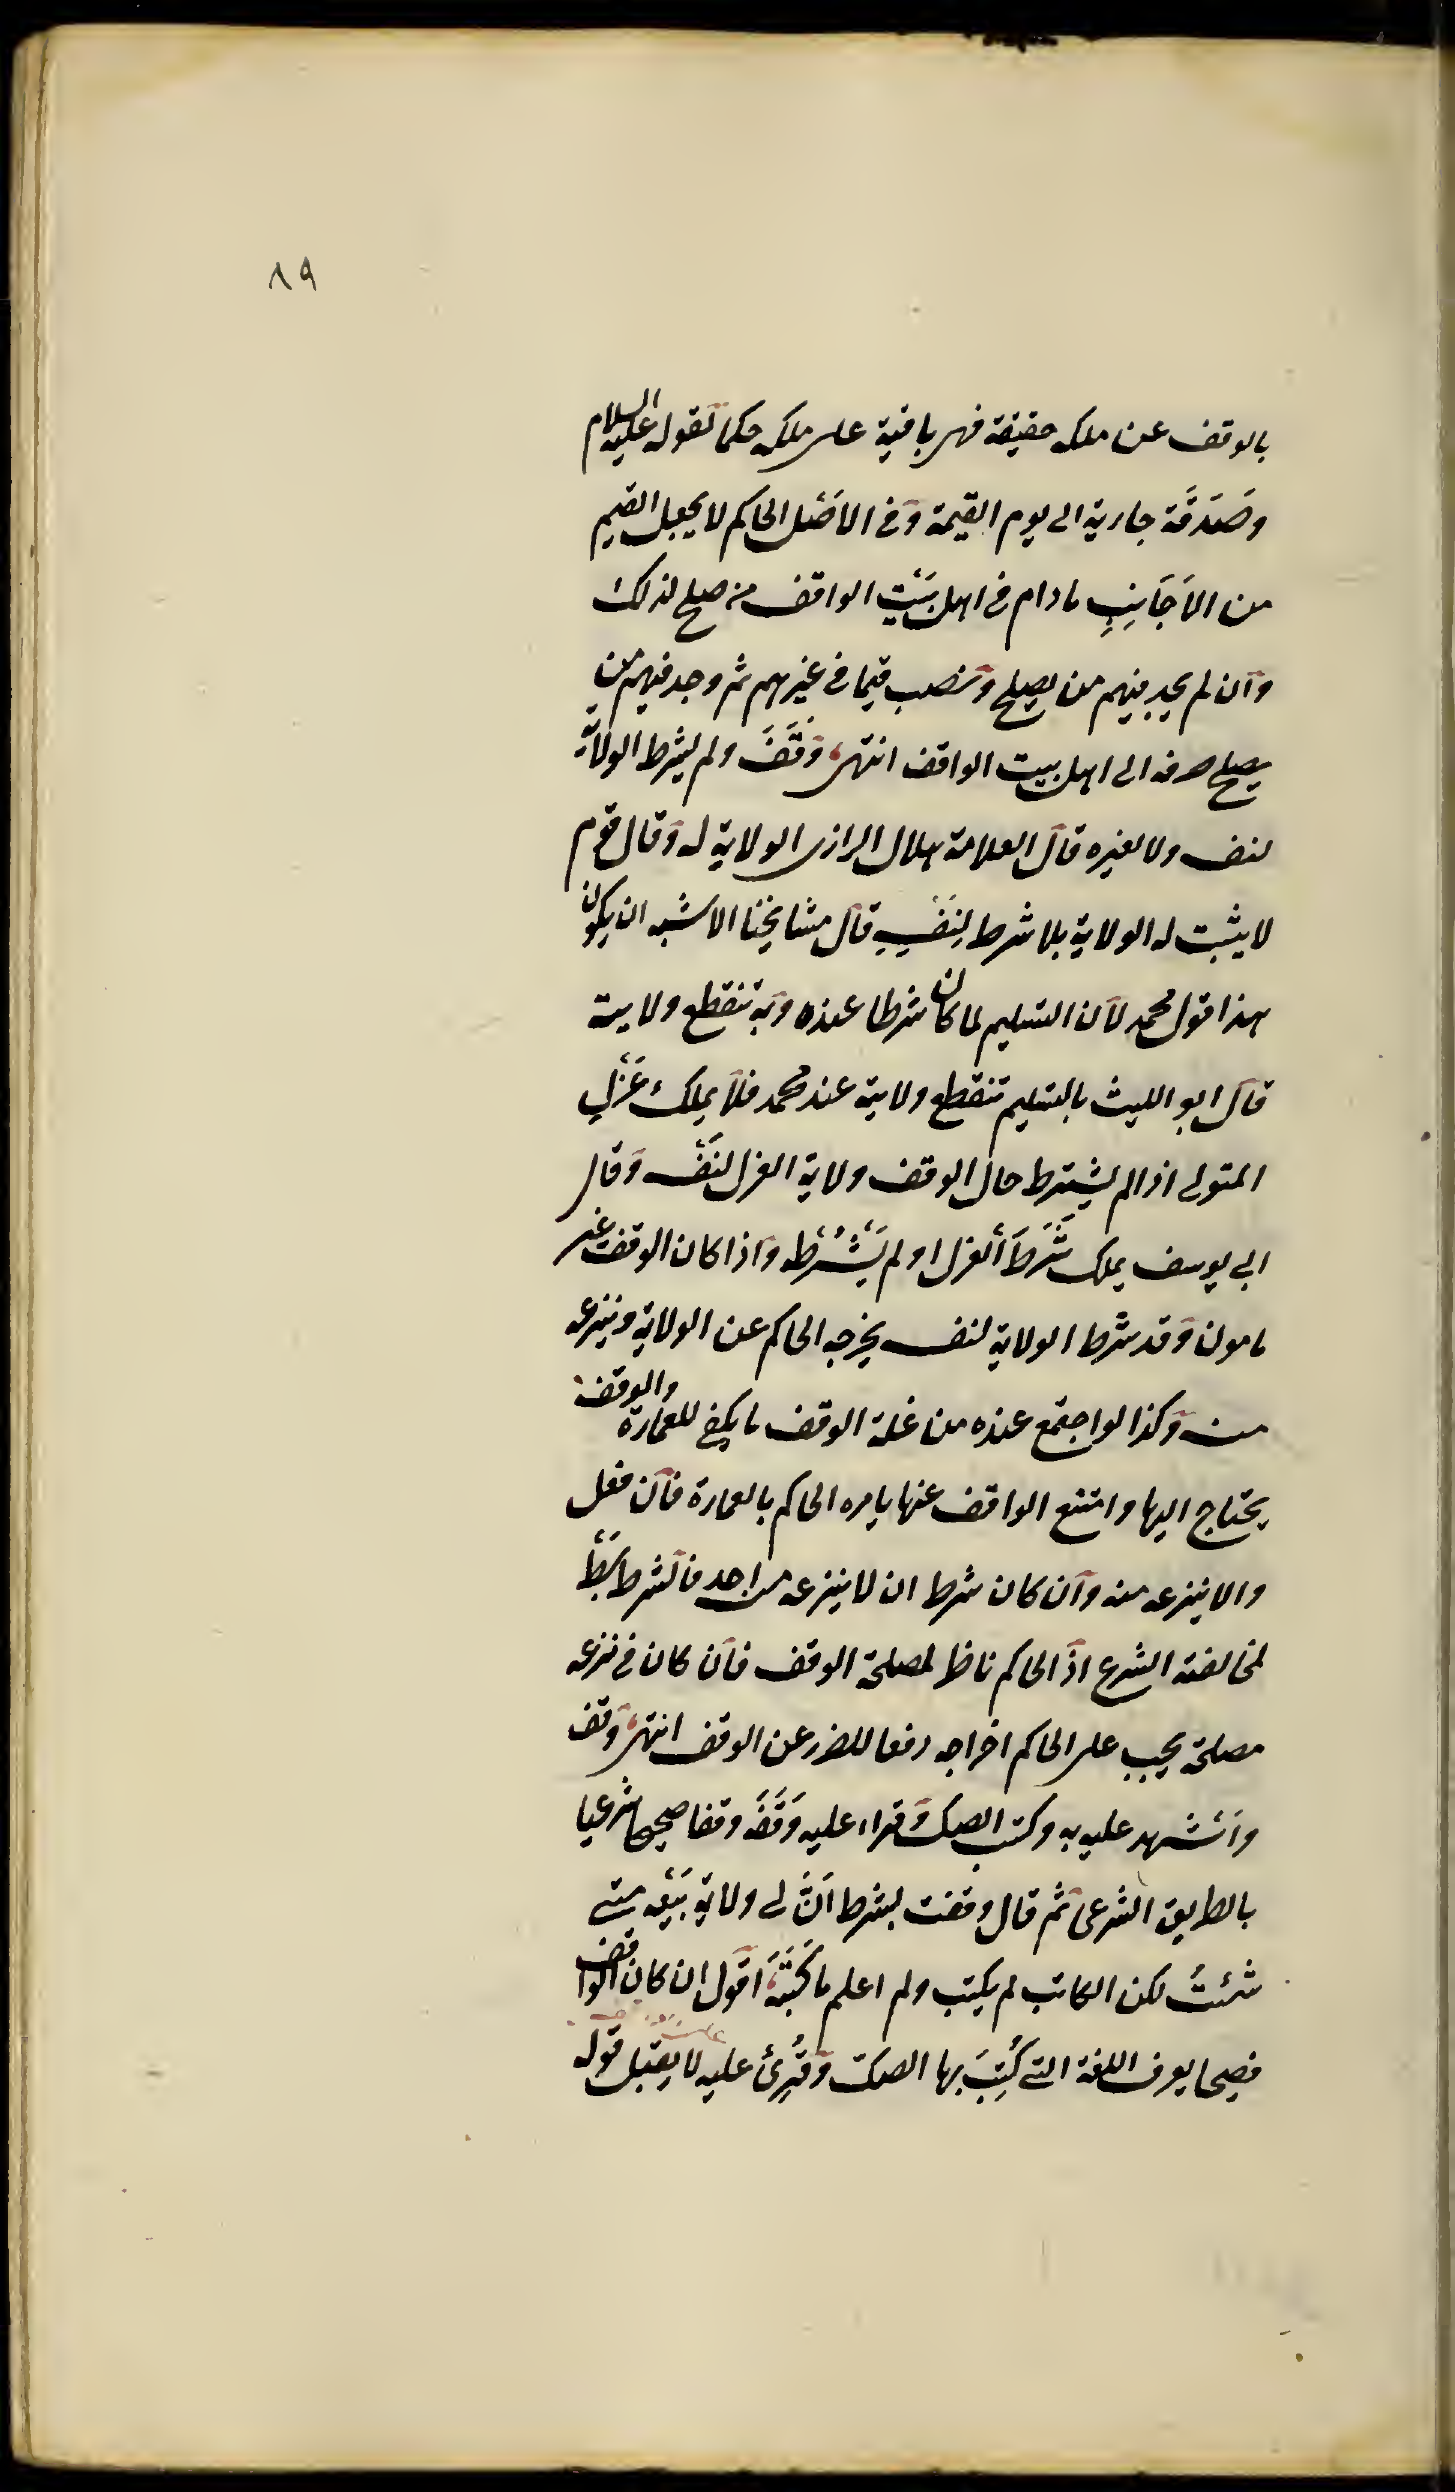 ٨٩
بالوقف عن ملكه حقيقة فهى باقية على ملكه حكما لقوله عليه السلام
وصَدَقَة جارية الى يوم القيمة وفى الاَصْل الحاكم لا يجعل القيم
من الاَجَانِبِ مادام فى اهل بَيْتِ الواقف من صلح لذلك
وان لم يجد فيهم من يصلح ونصب قيما فى غيرهم ثم وجد فيهم من
يصلح صرفه الى اهل بيت الواقف انتهى وَقَفَ ولم يشرط الولاية
لنفسه ولا لغيره قال العلامة هلال الرازى الولاية له وقال قوم
لا يثبت له الولاية بلا شرط لِنَفْسِهِ قال مشايخنا الاشبه ان يكون
هذا قول محمد لان التسليم لما كان شرطا عنده وبه تنقطع ولايته
قال ابو الليث بالتسليم تنقطع ولايته عند محمد فلا يملك عَزْلِ
المتولى اذا لم يشترط حال الوقف ولاية العزل لنَفْسه وقال
ابى يوسف يملك شَرَطَ العزل او لم يَشْرُطه واذا كان الوقف غير
مامون وقد شرط الولاية لنفسه يخرجه الحاكم عن الولاية وينزعه
منه وكذا لو اجتمع عنده من غلة الوقف ما يكفى للعمارة والوقف
يحتاج اليها وامتنع الواقف عنها يامره الحاكم بالعمارة فان فعل
والا ينزعه منه وان كان شرط ان لا ينزعه من احد فالشرط
لمخالفته الشرع اذ الحاكم ناظر لمصلحة الوقف فان كان فى نزعه
مصلحة يجب على الحاكم اخراجه دفعا للضرر عن الوقف انتهى وقف
واَشْهد عليه به وكتب الصك وقراء عليه وَقَفَهُ وقفا صحيحا شرعيا
بالطريق الشرعى ثم قال وقفت بشرط اَنَّ لى ولاية بَيْعه متى
شئتُ لكن الكاتب لم يكتب ولم اعلم ما كَتَبَهُ اقول ان كان الواقف
فصيحا يعرف اللغة التى كُتِبَ بها الصك وقُرِئَ عليه لا يقبل قوله